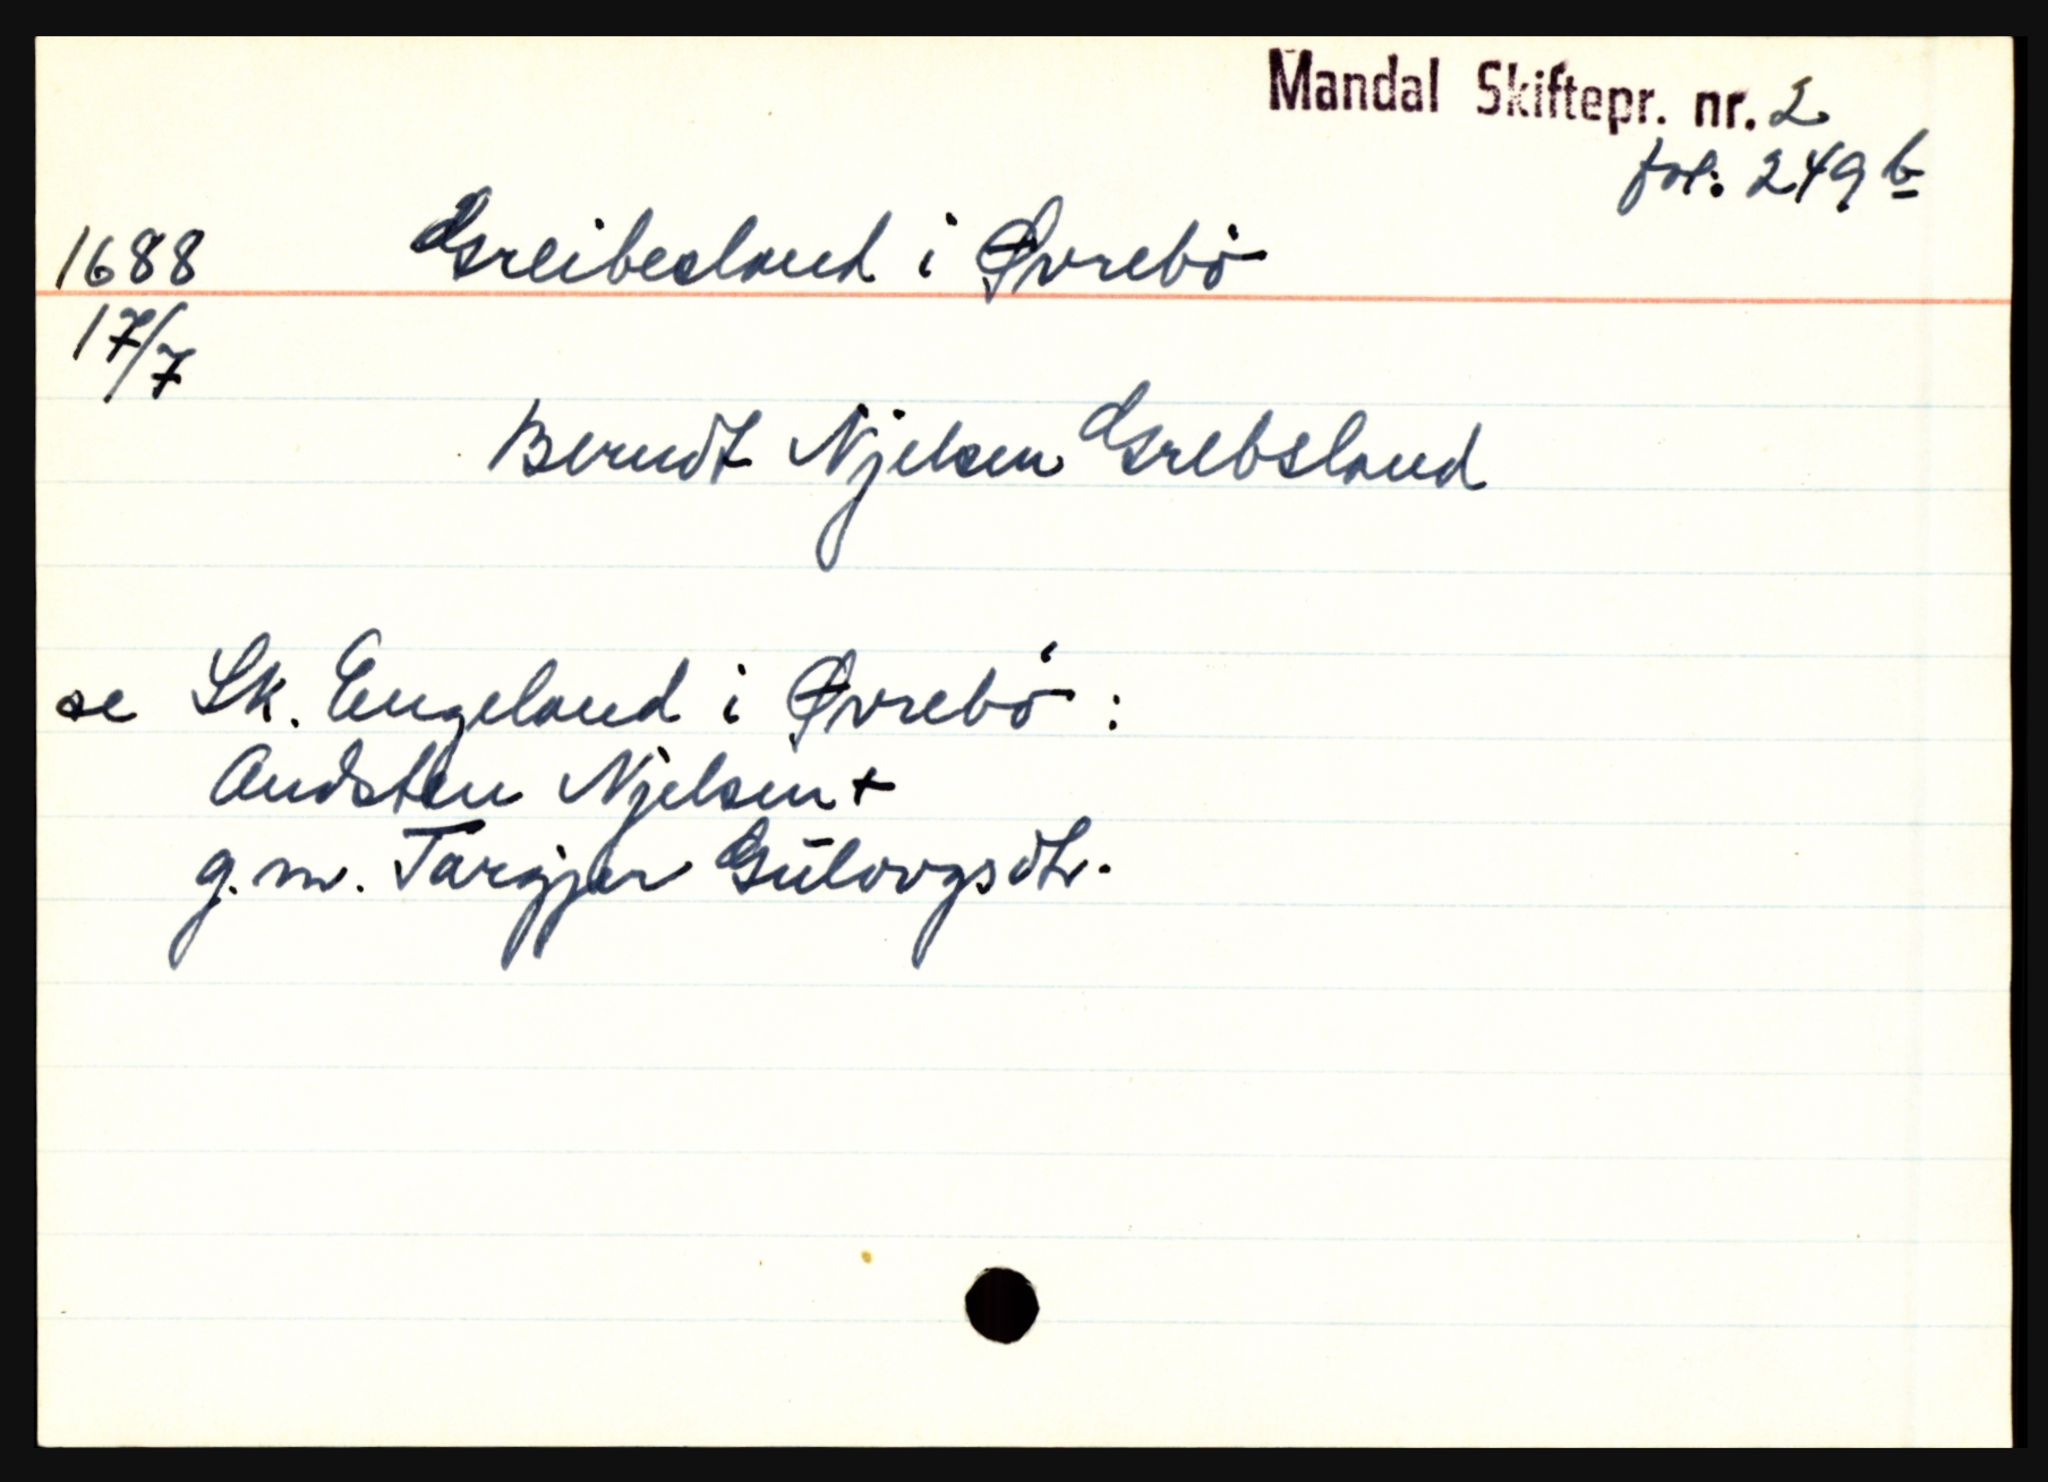 Mandal Skiftepr. nr. 2
fol: 249 b
1688 Greibesland i Øvrebö
17/7
Berndt Njelsen Grebsland
se Sk. Engeland i Øvrebö :
Andsten Njelsen +
g. m. Targjer Gúlovgsdtr.